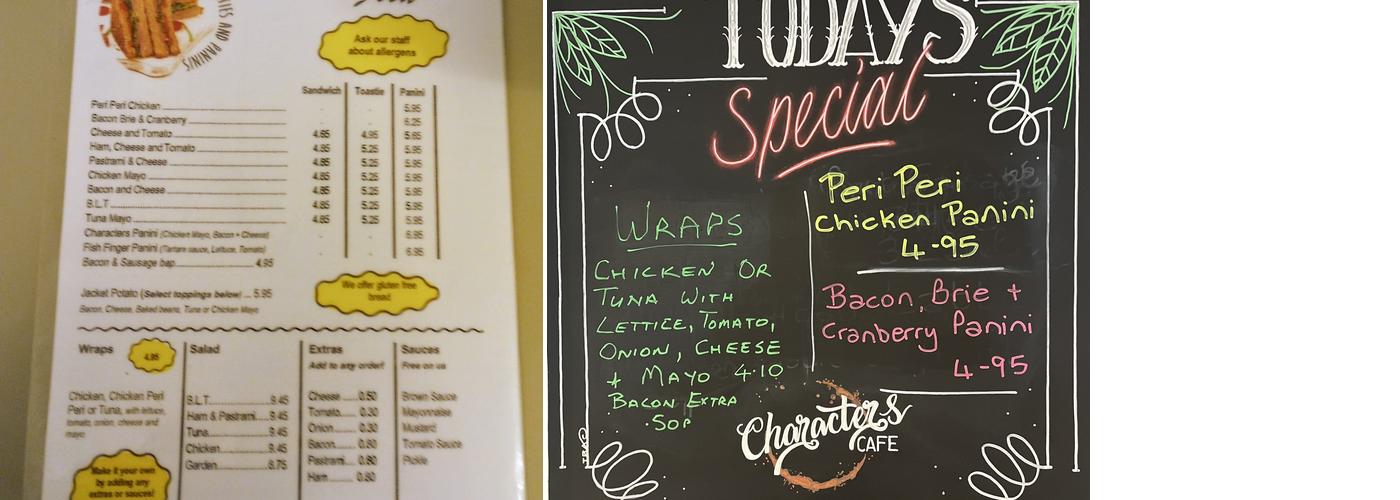 IES AND PANINIS
Ask our staff
about allergens
Sandwich Toastie Panini
Peri Peri Chicken - - 5.95
Bacon Brie & Cranberry - - 6.25
Cheese and Tomato 4.65 4.95 5.65
Ham, Cheese and Tomato 4.65 5.25 5.95
Pastrami & Cheese 4.65 5.25 5.95
Chicken Mayo 4.65 5.25 5.95
Bacon and Cheese 4.65 5.25 5.95
B.L.T 4.65 5.25 5.95
Tuna Mayo 4.65 5.25 5.95
Characters Panini (Chicken Mayo, Bacon + Cheese) - - 6.95
Fish Finger Panini (Tartare sauce, Lettuce, Tomato) - - 6.95
Bacon & Sausage bap 4.95
Jacket Potato (Select toppings below) ... 5.95
Bacon, Cheese, Baked beans, Tuna or Chicken Mayo
We offer gluten free
bread
Wraps 4.95
Chicken, Chicken Peri
Peri or Tuna, with lettuce,
tomato, onion, cheese and
mayo
Make it your own
by adding any
extras or sauces!
Salad
B.L.T. 9.45
Ham & Pastrami 9.45
Tuna 9.45
Chicken 9.45
Garden 8.75
Extras
Add to any order!
Cheese 0.50
Tomato 0.30
Onion 0.30
Bacon 0.80
Pastrami 0.80
Ham 0.80
Sauces
Free on us
Brown Sauce
Mayonnaise
Mustard
Tomato Sauce
Pickle
TODAYS
Special
WRAPS
CHICKEN OR
TUNA WITH
LETTICE, TOMATO,
ONION, CHEESE
+ MAYO 4.10
BACON EXTRA
50P
Peri Peri
Chicken Panini
4-95
Bacon, Brie +
Cranberry Panini
4-95
Characters
CAFE